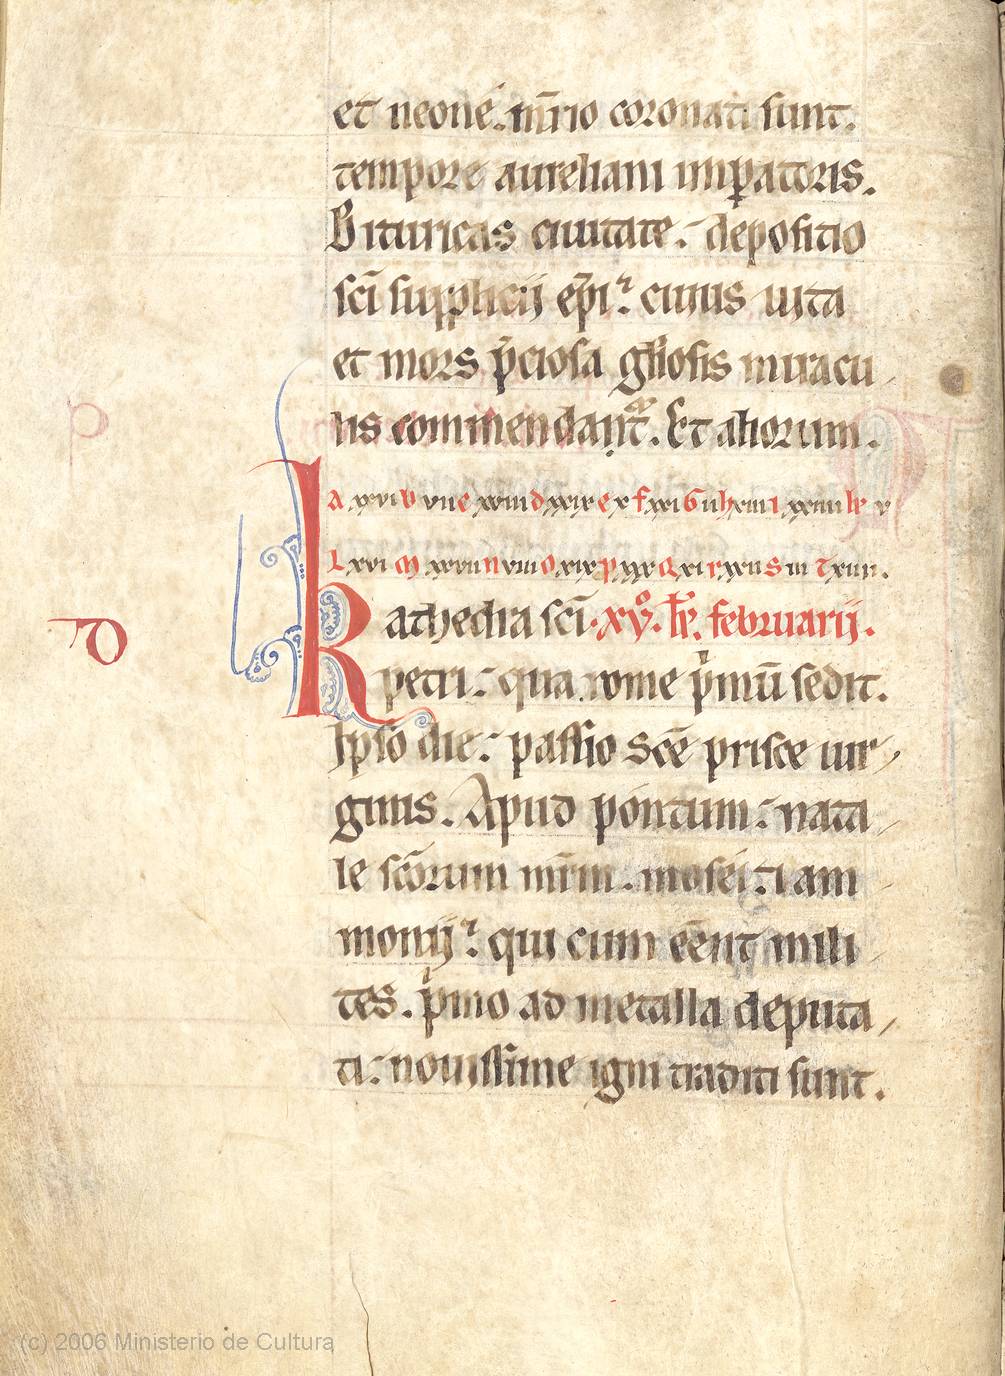 et neone. mr̄io coronati sunt.
tempore aureliani imp̄atoris.
Bituricas ciuitate. depositio
sc̄i supplicij ep̄i. cuius uita
et mors p̄ciosa gl̄iosis miracu
lis commendant᷑. Et aliorum.
A xxvi B vii c xviii d xxix e x f xxi G ii h xiii i xxiiii k v
L xvi M xxvii n viii O xix p xxx Q xi r xxii S iii T xiiii.
Kathedra sc̄i. xvº. kł. februarij.
petri. qua rome p̄mū sedit.
Ipso die. passio sc̄e prisce uir
ginis. Apud pontum. nata
le sc̄orum mr̄m. mosei. ⁊ am
monij. qui cum eēnt mili
tes. p̄mo ad metalla deputa
ti. nouissime igni traditi sunt.
d
(c) 2006 Ministerio de Cultura